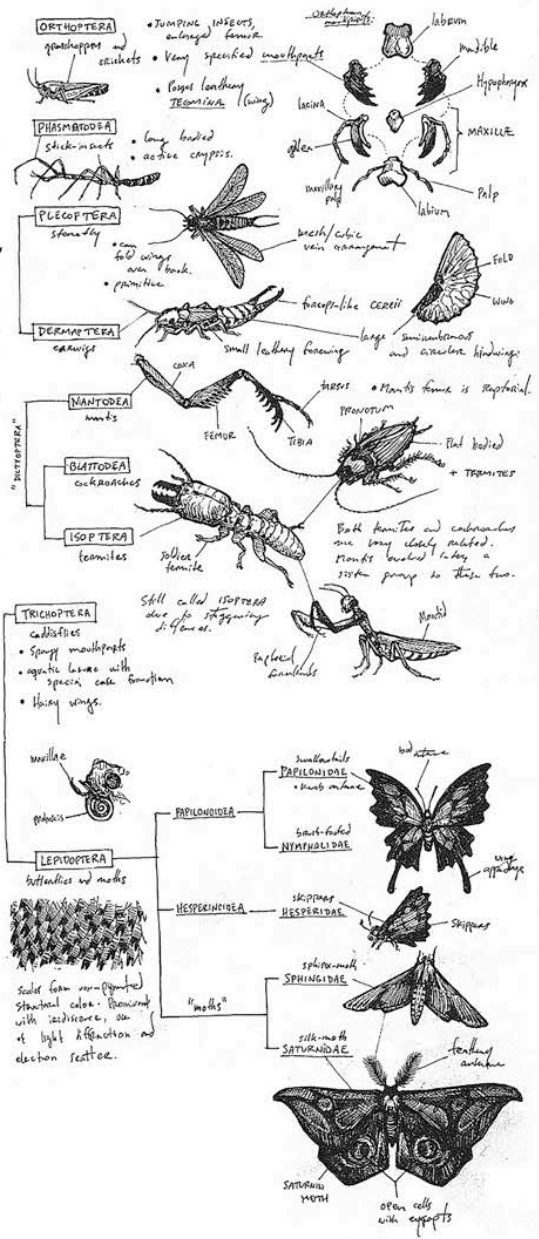 ORTHOPTERA
grasshoppers and
crickets
• JUMPING INSECTS,
enlarged femur
• Very specified mouthparts
• Posses leathery
TEGMINA (wing)
Orthopteran
mouthparts:
labrum
mandible
Hypopharynx
lacina
galea
MAXILLÆ
maxillary
palp
Palp
labium
PHASMATODEA
stick-insects
• long bodied
• active crypsis.
PLECOPTERA
stonefly
• can
fold wings
over back.
• primitive
mesh/cubic
vein arrangement
FOLD
WING
DERMAPTERA
earwigs
forceps-like CERCII
small leathery forewing
large semimembranous
and circular hindwing.
"DICTYOPTERA"
MANTODEA
mantis
COXA
FEMUR
TIBIA
TARSUS
• Mantis femur is raptorial.
BLATTODEA
cockroaches
PRONOTUM
Flat bodied
+ TERMITES
ISOPTERA
termites
soldier
termite
Both termites and cockroaches
are very closely related.
Mantis evolved later, a
sister group to these two.
Still called ISOPTERA
due to staggering
Raptorial
forelimbs
Mantid
TRICHOPTERA
caddisflies
• Spongy mouthparts
• aquatic larvae with
special case formation
• Hairy wings.
maxillae
proboscis
LEPIDOPTERA
butterflies and moths
Scales form non-pigmented
structural color. Prominent
with iridiscence, use
of light diffraction and
electron scatter.
PAPILONOIDEA
swallowtails
PAPILONIDAE
brush-footed
NYMPHALIDAE
wing
appendage
HESPERINOIDEA
skippers
HESPERIDAE
Skippers
"moths"
sphinx-moth
SPHINGIDAE
silk-moth
SATURNIDAE
feathery
antennae
SATURNID
MOTH
open cells
with eyespots